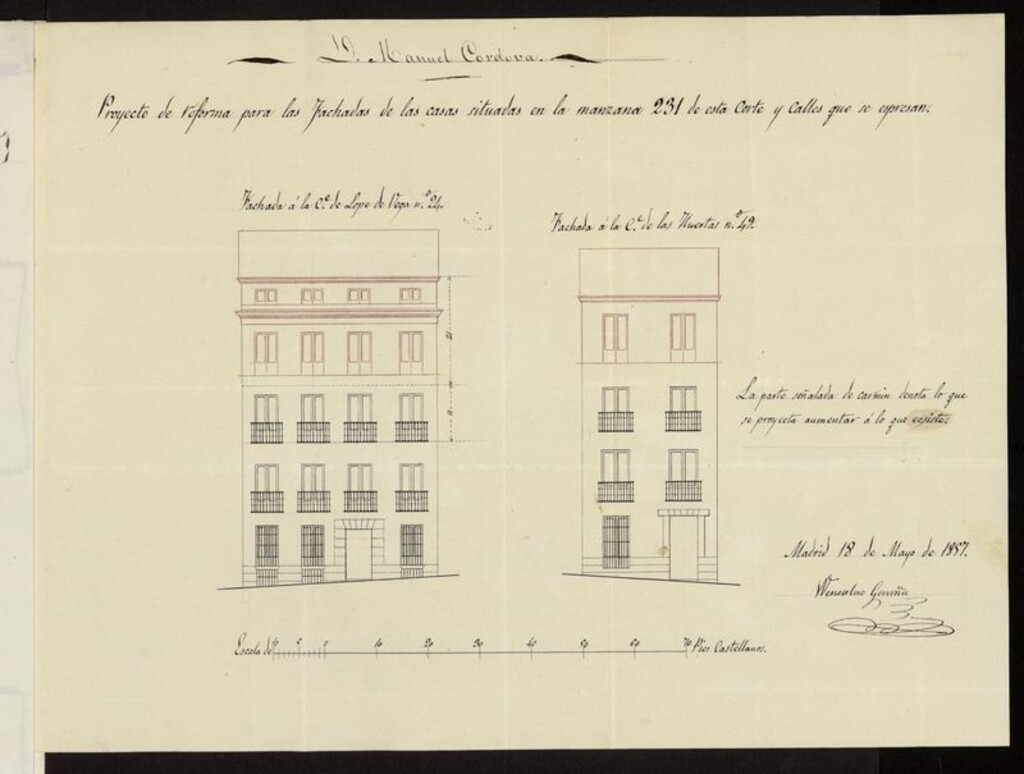 D. Manuel Cordova.
Proyecto de reforma para las Fachadas de las casas situadas en la manzana 231 de esta Corte y Calles que se epresan:
Fachada á la C.e de Lope de Vega n.o 24.
Fachada á la C.e de las Huertas n.o 49.
La parte señalada de carmin denota lo que
se proyecta aumentar á lo que ecsiste:
Madrid 18 de Mayo de 1857.
Wenceslao Gaviña
Escala de 10 5 0 10 20 30 40 50 60 70 Pies Castellanos.